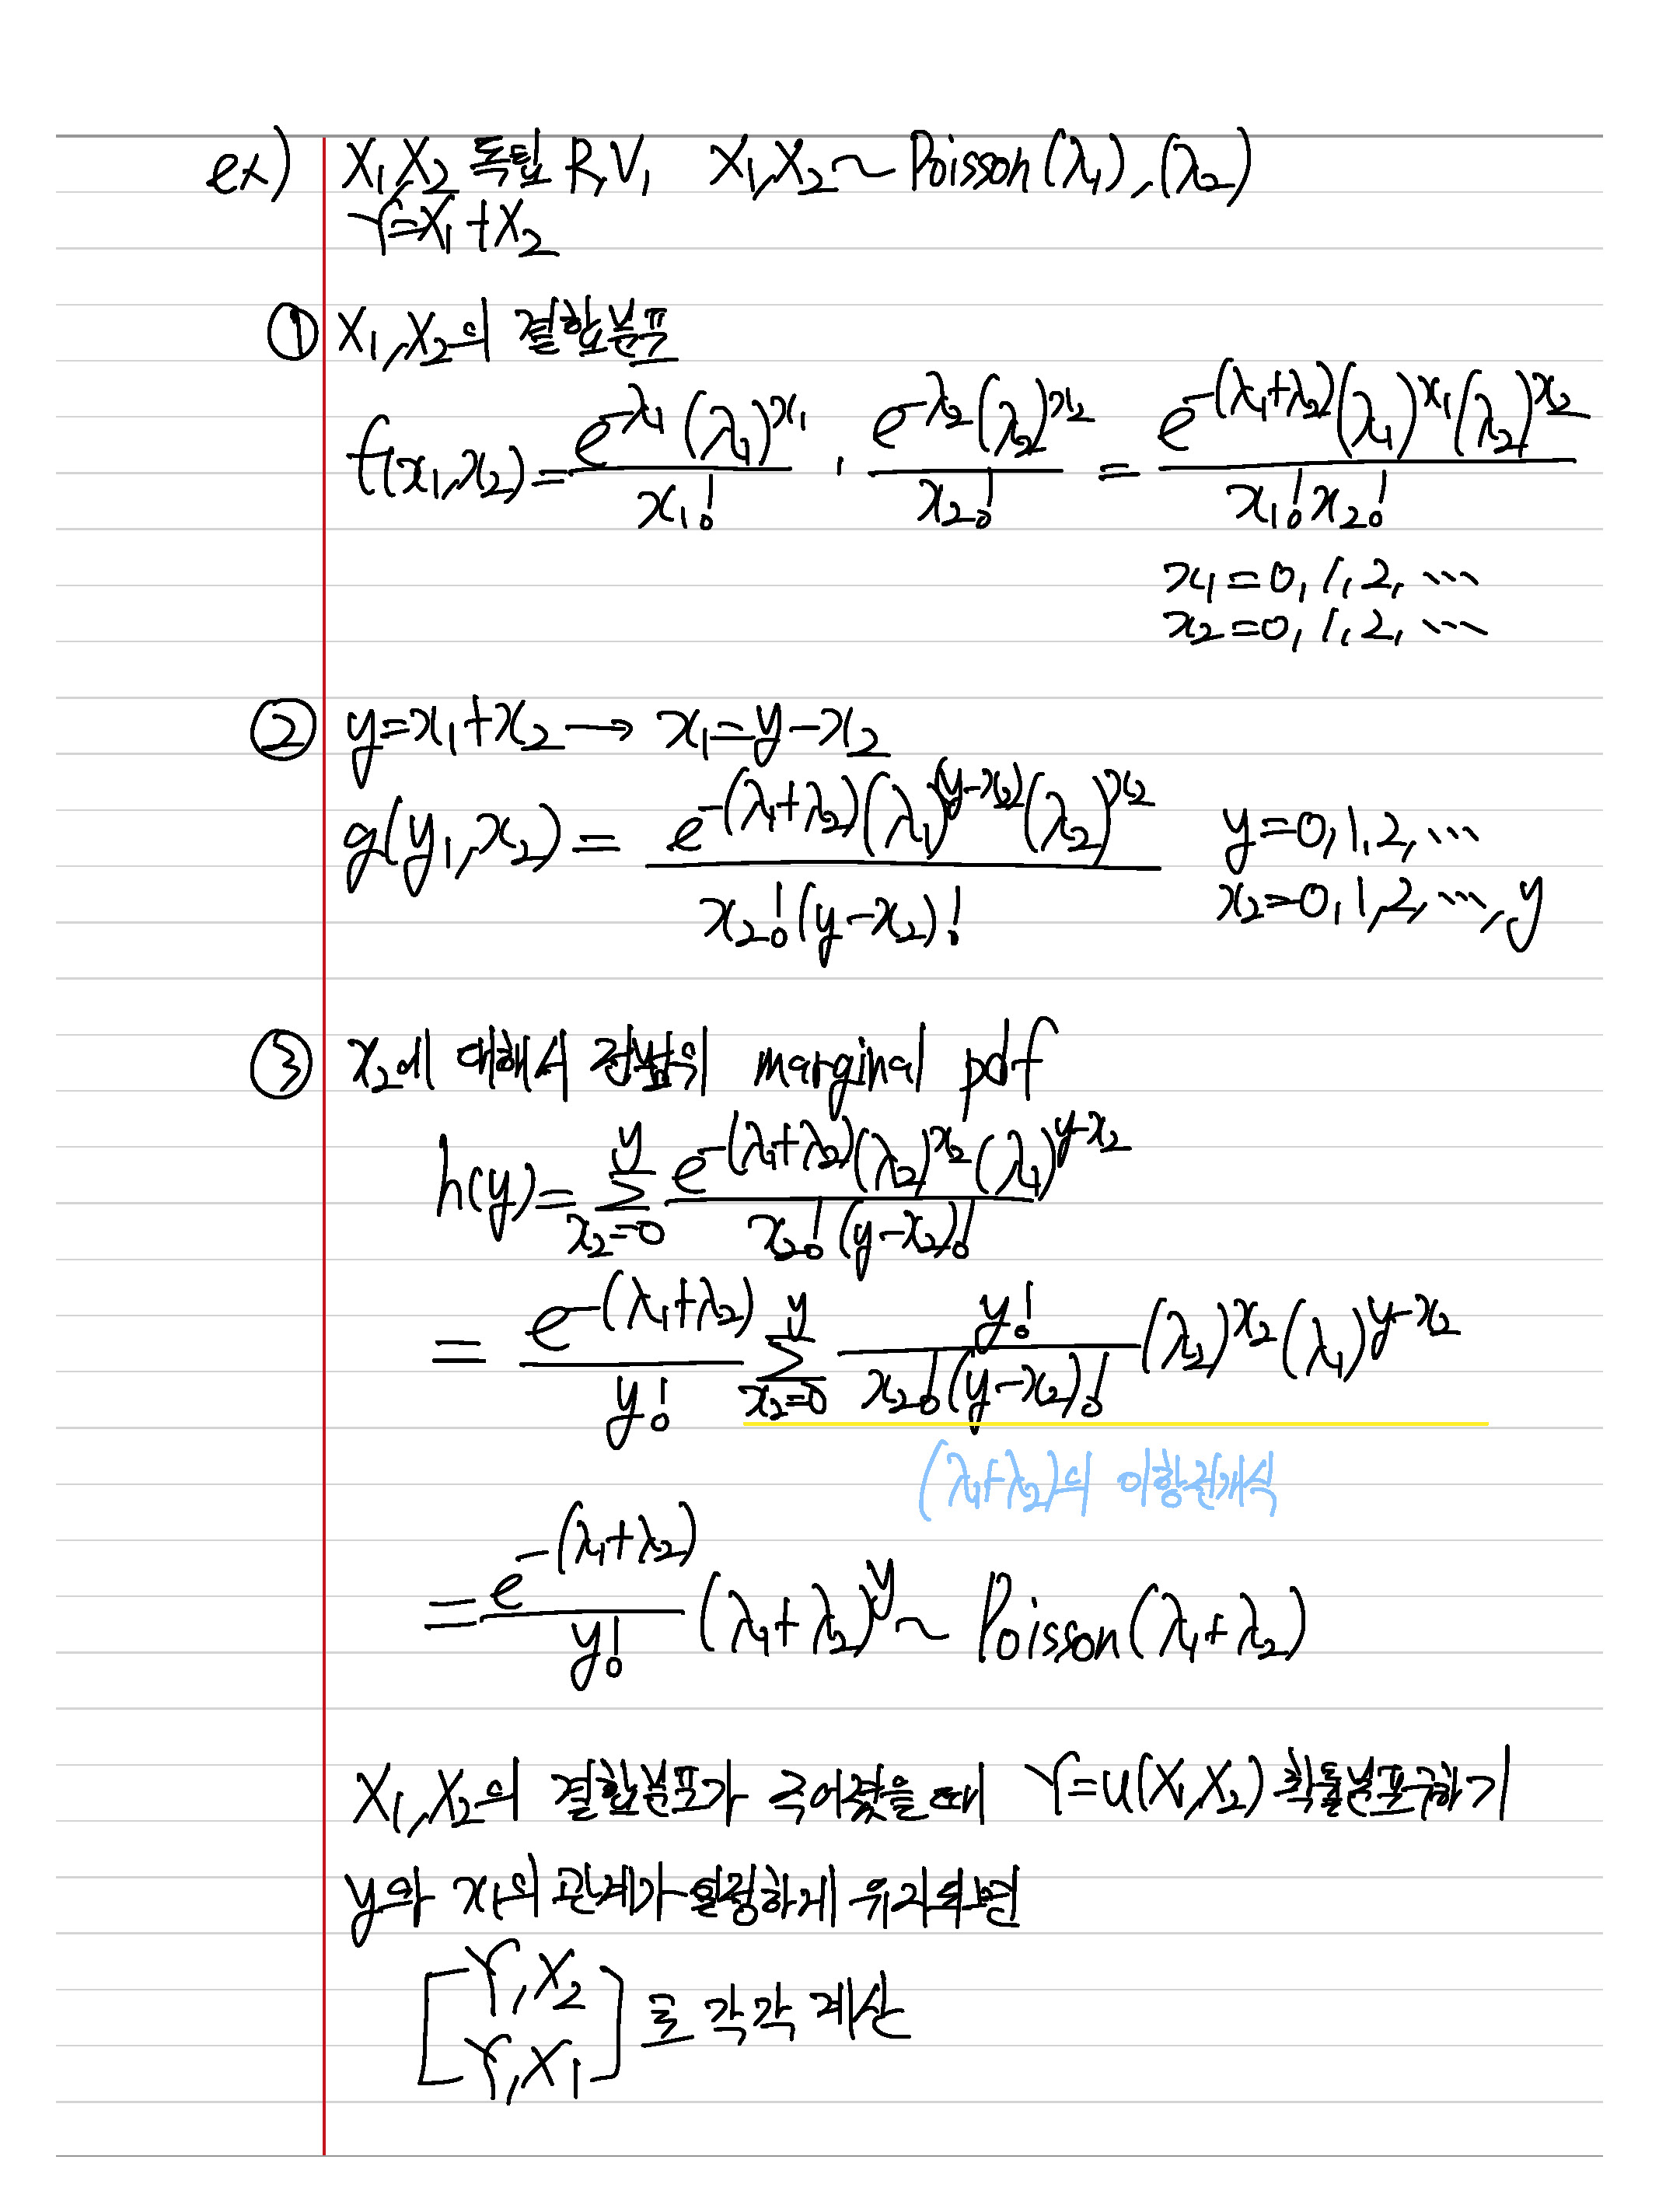 ex) X₁,X₂ 독립 R,V, X₁,X₂ ~ Poisson(λ₁),(λ₂)
Y=X₁+X₂
① X₁,X₂의 결합분포
f(x₁,x₂) = e^{-λ₁}(λ₁)^{x₁} / x₁! · e^{-λ₂}(λ₂)^{x₂} / x₂! = e^{-(λ₁+λ₂)}(λ₁)^{x₁}(λ₂)^{x₂} / x₁!x₂!
x₁=0,1,2,⋯
x₂=0,1,2,⋯
② y=x₁+x₂ → x₁=y-x₂
g(y₁,x₂) = e^{-(λ₁+λ₂)}(λ₁)^{(y-x₂)}(λ₂)^{x₂} / x₂!(y-x₂)! y=0,1,2,⋯
x₂=0,1,2,⋯,y
③ x₂에 대해서 전부합의 marginal pdf
h(y) = Σ_{x₂=0}^{y} e^{-(λ₁+λ₂)}(λ₂)^{x₂}(λ₁)^{y-x₂} / x₂!(y-x₂)!
= e^{-(λ₁+λ₂)} / y! Σ_{x₂=0}^{y} y! / x₂!(y-x₂)! (λ₂)^{x₂}(λ₁)^{y-x₂}
(λ₁+λ₂)의 이항전개식
= e^{-(λ₁+λ₂)} / y! (λ₁+λ₂)^y ~ Poisson(λ₁+λ₂)
X₁,X₂의 결합분포가 주어졌을 때 Y=u(X₁,X₂) 확률분포구하기
y와 x₁의 관계가 일정하게 유지되면
[Y,X₂
Y,X₁] 로 각각 계산